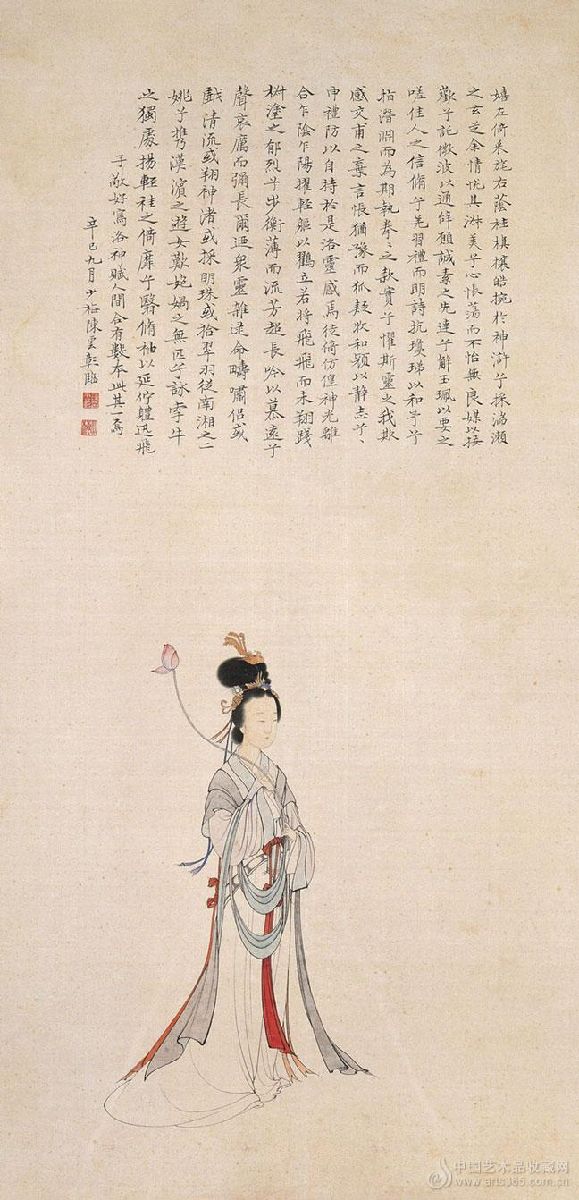 嬉左倚采旄右蔭桂旗攘皓捥於神滸兮採湍瀨
之玄芝余情悅其淋美兮心悵蕩而不怡無良媒以接
歡兮託微波以通辭願誠素之先達兮解玉珮以要之
嗟佳人之信脩兮羌習禮而明詩抗瓊珶以和予兮
指潛淵而為期執拳々之款實兮懼斯靈之我欺
感交甫之棄言悵猶豫而狐疑收和顏以靜志兮
申禮防以自持於是洛靈感焉徙倚仿偟神光離
合乍陰乍陽擢輕軀以鶴立若將飛飛而未翔踐
椒塗之郁烈兮步衡薄而流芳超長吟以慕遠兮
聲哀厲而彌長爾迺眾靈雜遝命疇嘯侶或
戲清流或翔神渚或採明珠或拾翠羽從南湘之二
姚兮攜漢濱之遊女歎炮媧之無匹兮詠牽牛
之獨處揚輕袿之倚靡兮翳脩袖以延佇體迅飛
子敬好寫洛神賦人間合有數本此其一焉
辛巳九月少梅陳雲彰臨
中国艺术品收藏网
www.arts365.com.cn